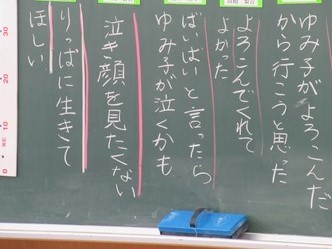 ゆみ子がよろこんだ
から行こうと思った
よろこんでくれて
よかった
ばいばいと言ったら
ゆみ子が泣くかも
泣き顔を見たくない
りっぱに生きて
ほしい
30
20
10
0